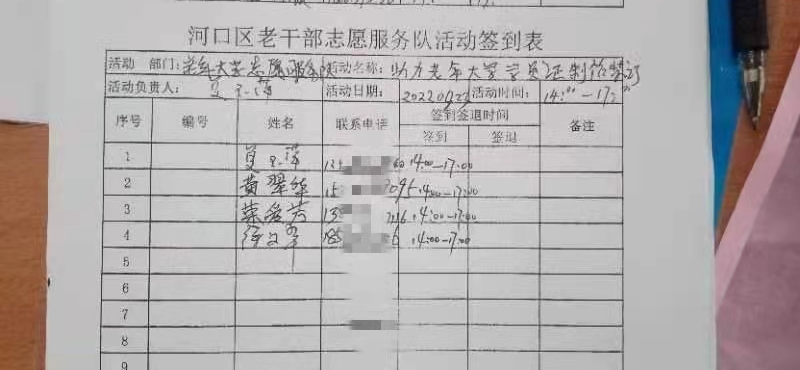 河口区老干部志愿服务队活动签到表
活动 部门：老年大学志愿服务队 活动名称：助力老年大学学员证制作签订
活动负责人： 活动日期： 活动时间：14:00-17:00
序号 编号 姓名 联系电话 签到签退时间 备注
签到 签退
1 14:00-17:00
2 黄翠华 15 095 14:00-17:00
3 13 14:00-17:00
4 14:00-17:00
5
6
7
8
9